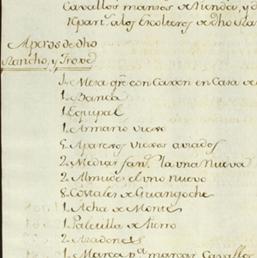 Cavallos mansos de rienda, y d
 a los Escolteros de dho Ra
Aperos de dho
Rancho, y Troxe
1. Mesa gre con Caxon en Casa d
1. Banca
1. Equipal
1. Armario viexo
5. Aparexos viexos aviados
2. Medias fan.s la una Nueva
2. Almudes el uno nuevo
8. Costales de Guangoche
1. Acha de Monte
1. Paletilla de fierro
2. Azadones
1. Marca p.a marcar Cavallos